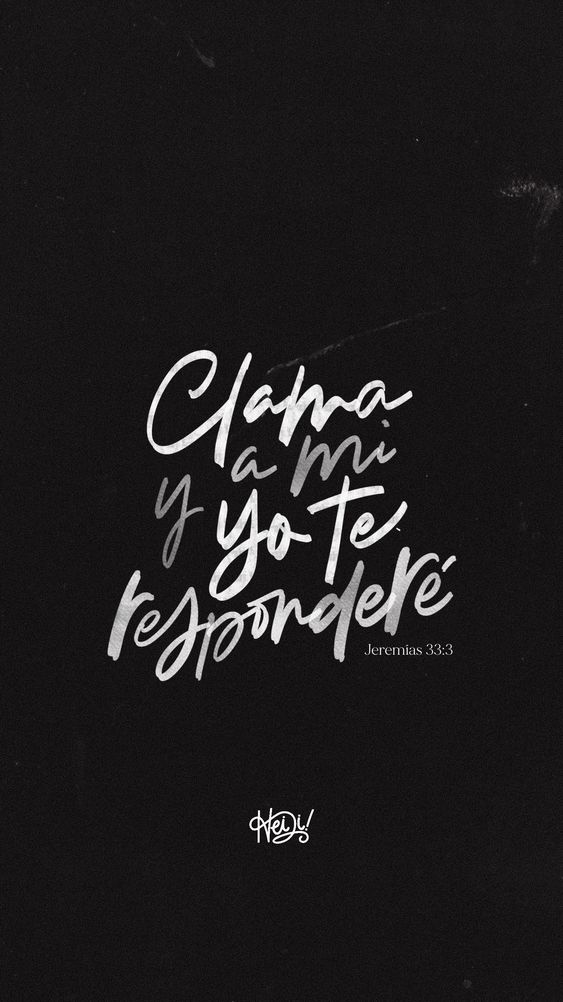 Clama
a mi
y yo te
responderé
Jeremias 33:3
Heidi!